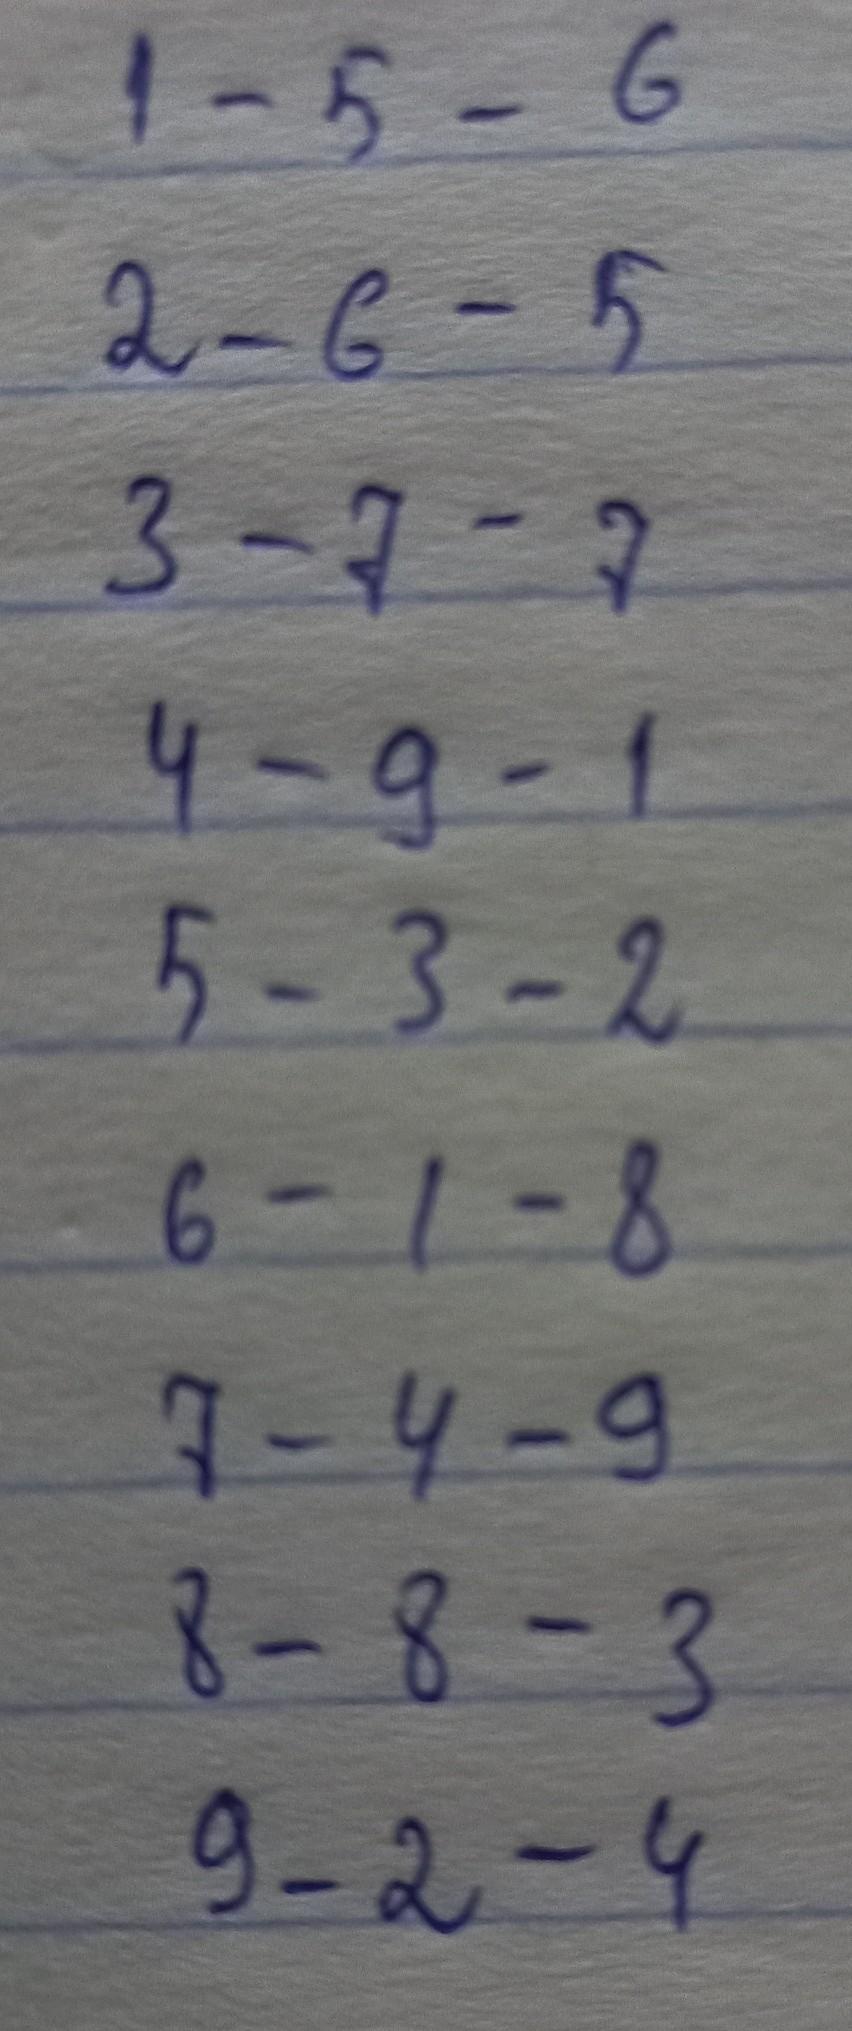 1 - 5 - 6
2 - 6 - 5
3 - 7 - 7
4 - 9 - 1
5 - 3 - 2
6 - 1 - 8
7 - 4 - 9
8 - 8 - 3
9 - 2 - 4